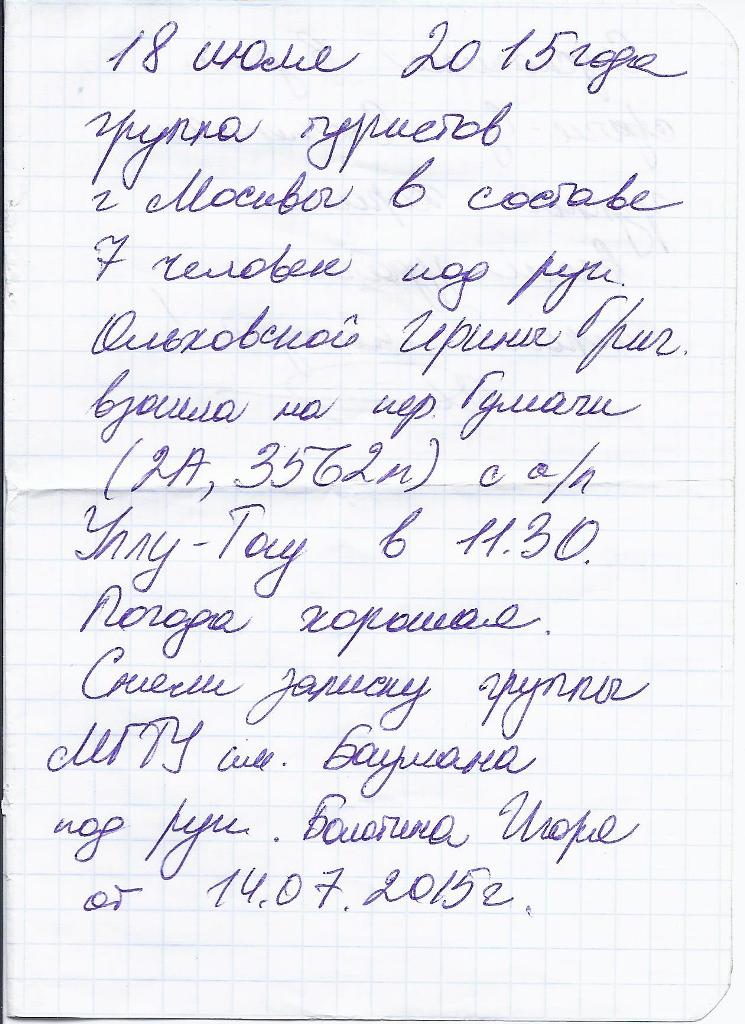 18 июля 2015 года
группа туристов
г Москвы в составе
7 человек под рук.
Ольховской Ирины Григ.
взошла на пер. Гумачи
(2А, 3562м) с а/л
Уллу-Тау в 11.30.
Погода хорошая.
Сняли записку группы
МГТУ им. Баумана
под рук. Болотина Игоря
от 14.07.2015г.